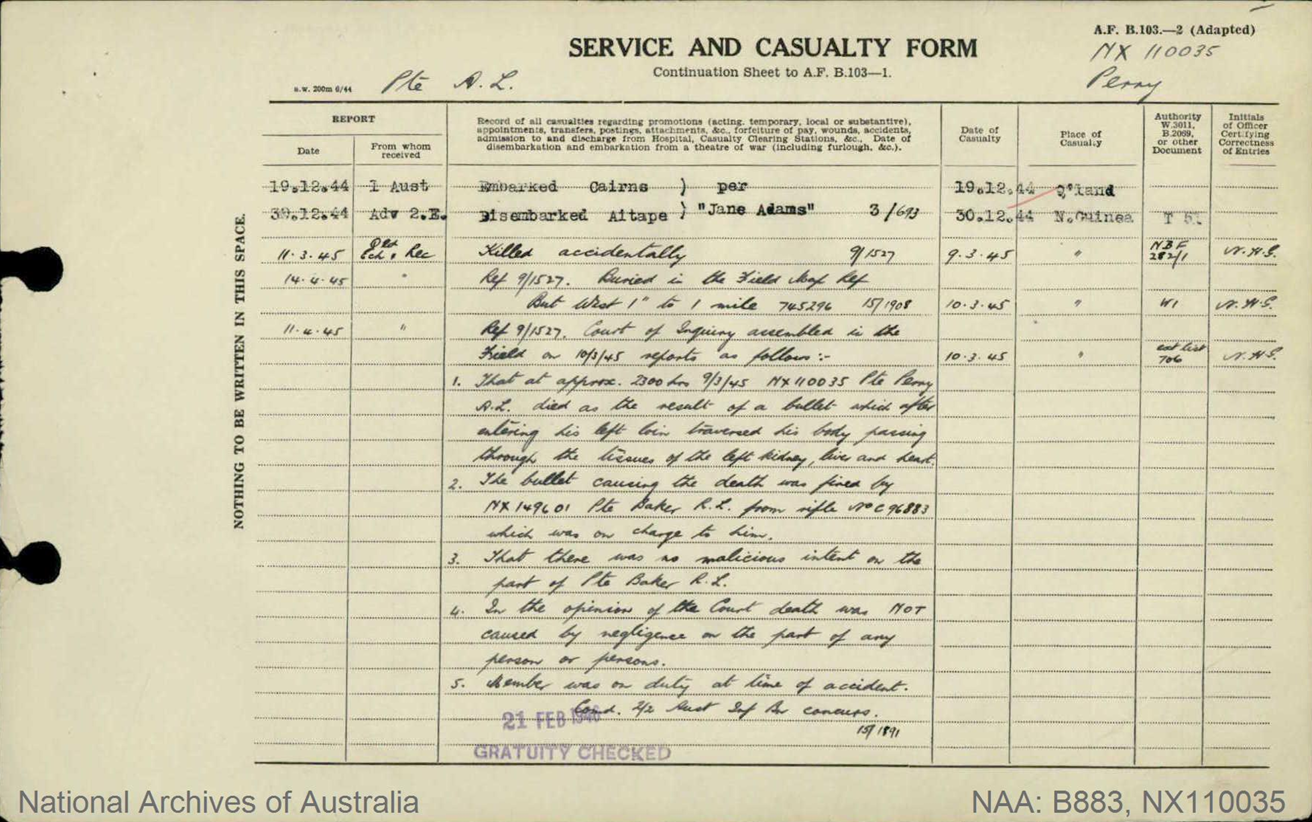 A.F. B.103.—2 (Adapted)
NX 110035
SERVICE AND CASUALTY FORM
Continuation Sheet to A.F. B.103—1.
Perry
a.w. 200m 6/44
Pte A.L.
REPORT
Date
From whom received
Record of all casualties regarding promotions (acting, temporary, local or substantive),
appointments, transfers, postings, attachments, &c., forfeiture of pay, wounds, accidents,
admission to and discharge from Hospital, Casualty Clearing Stations, &c., Date of
disembarkation and embarkation from a theatre of war (including furlough, &c.).
Date of Casualty
Place of Casualty
Authority W.3011, B.2069, or other Document
Initials of Officer Certifying Correctness of Entries
NOTHING TO BE WRITTEN IN THIS SPACE.
19.12.44 1 Aust Embarked Cairns ) per 19.12.44 Q'land
30.12.44 Adv 2.E. Disembarked Aitape ) "Jane Adams" 3/693 30.12.44 N.Guinea T 5.
11.3.45 2nd Ech. Rec Killed accidentally 9/1527 9.3.45 " NBF 282/1 N.H.G.
14.4.45 " Ref 9/1527. Buried in the Field Map Ref
But West 1" to 1 mile 745296 15/1908 10.3.45 " W1 N.H.G.
11.4.45 " Ref 9/1527. Court of Inquiry assembled in the
Field on 10/3/45 reports as follows:- 10.3.45 " cas list 706 N.H.G.
1. That at approx. 2300 hrs 9/3/45 NX110035 Pte Perry
A.L. died as the result of a bullet which after
entering his left loin traversed his body passing
through the tissues of the left kidney, liver and heart.
2. The bullet causing the death was fired by
NX149601 Pte Baker R.L. from rifle No C96883
which was on charge to him.
3. That there was no malicious intent on the
part of Pte Baker R.L.
4. In the opinion of the Court death was NOT
caused by negligence on the part of any
person or persons.
5. Member was on duty at time of accident.
Comd. 2/2 Aust Inf Bn concurs.
21 FEB 1946
15/1891
GRATUITY CHECKED
National Archives of Australia
NAA: B883, NX110035